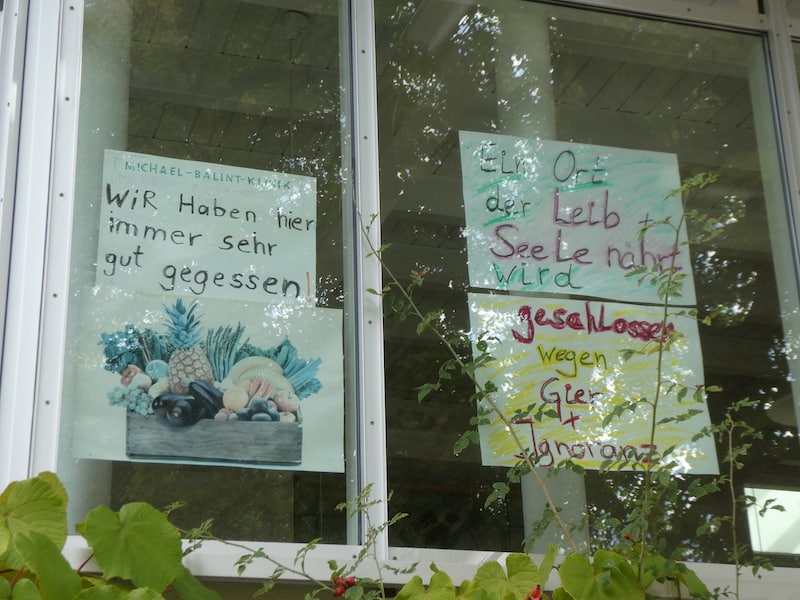 MICHAEL-BALINT-KLINIK
WiR Haben hier
immer sehr
gut gegessen!
Ein Ort
der Leib +
Seele nährt
wird
geschlossen
wegen
Gier
+
Ignoranz